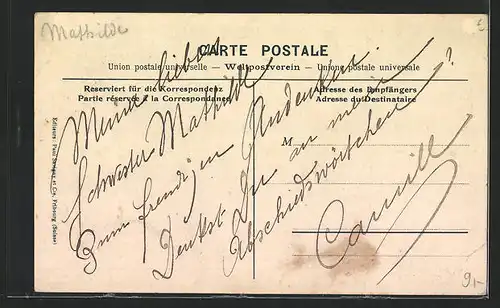 Mathilde
CARTE POSTALE
Union postale universelle – Weltpostverein – Unione postale universale
Reserviert für die Korrespondenz
Partie réservée à la Correspondance
Adresse des Empfängers
Adresse du Destinataire
M
Meiner lieben
Schwester Mathilde
Zum freudigen Andenken.
Denkst Du an mein
Abschiedswörtchen?
Camill
9,-